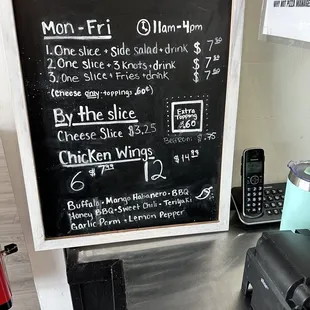 WHY NOT PIZZA
MANAGER
Mon - Fri 11am - 4pm
1. One slice + side salad + drink $ 7
2. One slice + 3 knots + drink $ 7
3. One slice + Fries + drink $ 7
(cheese only - toppings .60¢)
By the slice
Cheese Slice $3.25
Extra
Topping
.60
$.75
Chicken Wings
6 $7.99 12 $14
Buffalo · Mango Habanero · BBQ
Honey BBQ · Sweet Chili · Teriyaki
Garlic Parm · Lemon Pepper